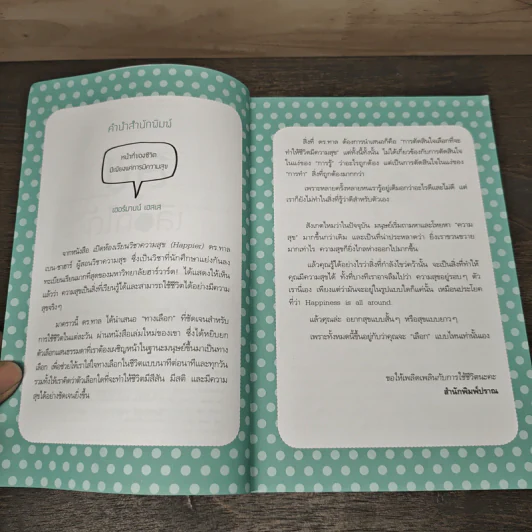 คำนำสำนักพิมพ์
หน้าที่ของชีวิต
มีเพียงแค่การมีความสุข
เฮอร์มานน์ เฮสเส
จากหนังสือ เปิดห้องเรียนวิชาความสุข (Happier) ดร.ทาล
เบน-ชาฮาร์ ผู้สอนวิชาความสุข ซึ่งเป็นวิชาที่นักศึกษาแย่งกันลง
ทะเบียนเรียนมากที่สุดของมหาวิทยาลัยฮาร์วาร์ด! ได้แสดงให้เห็น
แล้วว่า ความสุขเป็นสิ่งที่เรียนรู้ได้และสามารถใช้ชีวิตได้อย่างมีความ
สุขจริงๆ
มาคราวนี้ ดร.ทาล ได้นำเสนอ “ทางเลือก” ที่ชัดเจนสำหรับ
การใช้ชีวิตในแต่ละวัน ผ่านหนังสือเล่มใหม่ของเขา ซึ่งได้หยิบยก
ตัวเลือกแสนธรรมดาที่เราต้องเผชิญหน้าในฐานะมนุษย์ขึ้นมาเป็นทาง
เลือก เพื่อช่วยให้เราใส่ใจทางเลือกในชีวิตแบบนาทีต่อนาทีและทุกวัน
รวมทั้งให้เราคิดว่าตัวเลือกใดที่จะทำให้ชีวิตมีสีสัน มีสติ และมีความ
สุขได้อย่างชัดเจนยิ่งขึ้น
สิ่งที่ ดร.ทาล ต้องการนำเสนอก็คือ “การตัดสินใจเลือกที่จะ
ทำให้ชีวิตมีความสุข” แต่ทั้งนี้ทั้งนั้น ไม่ได้เกี่ยวข้องกับการตัดสินใจ
ในแง่ของ “การรู้” ว่าอะไรถูกต้อง แต่เป็นการตัดสินใจในแง่ของ
“การทำ” สิ่งที่ถูกต้องมากกว่า
เพราะหลายครั้งหลายหนเรารู้อยู่เต็มอกว่าอะไรดีและไม่ดี แต่
เราก็ยังไม่ทำในสิ่งที่รู้ว่าดีสำหรับตัวเอง
สังเกตไหมว่าในปัจจุบัน มนุษย์เริ่มถามหาและโหยหา “ความ
สุข” มากขึ้นกว่าเดิม และเป็นที่น่าประหลาดว่า ยิ่งเราขวนขวาย
มากเท่าไร ความสุขก็ยิ่งไกลห่างออกไปมากขึ้น
แล้วคุณรู้ได้อย่างไรว่าสิ่งที่กำลังไขว่คว้านั้น จะเป็นสิ่งที่ทำให้
คุณมีความสุขได้ ทั้งที่บางทีเราอาจลืมไปว่า ความสุขอยู่รอบๆ ตัว
เรานี่เอง เพียงแต่ว่ามันจะอยู่ในรูปแบบใดก็แค่นั้น เหมือนประโยค
ที่ว่า Happiness is all around
แล้วคุณล่ะ อยากสุขแบบสั้นๆ หรือสุขแบบยาวๆ
เพราะทั้งหมดนี้ขึ้นอยู่กับว่าคุณจะ “เลือก” แบบไหนเท่านั้นเอง
ขอให้เพลิดเพลินกับการใช้ชีวิตนะคะ
สำนักพิมพ์ปราณ